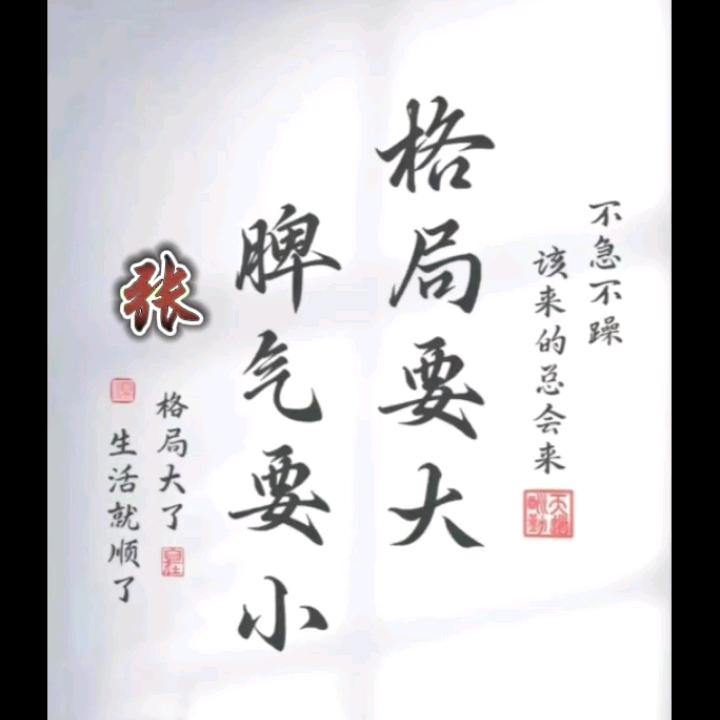 不急不躁
该来的总会来
格局要大
脾气要小
张
格局大了
生活就顺了